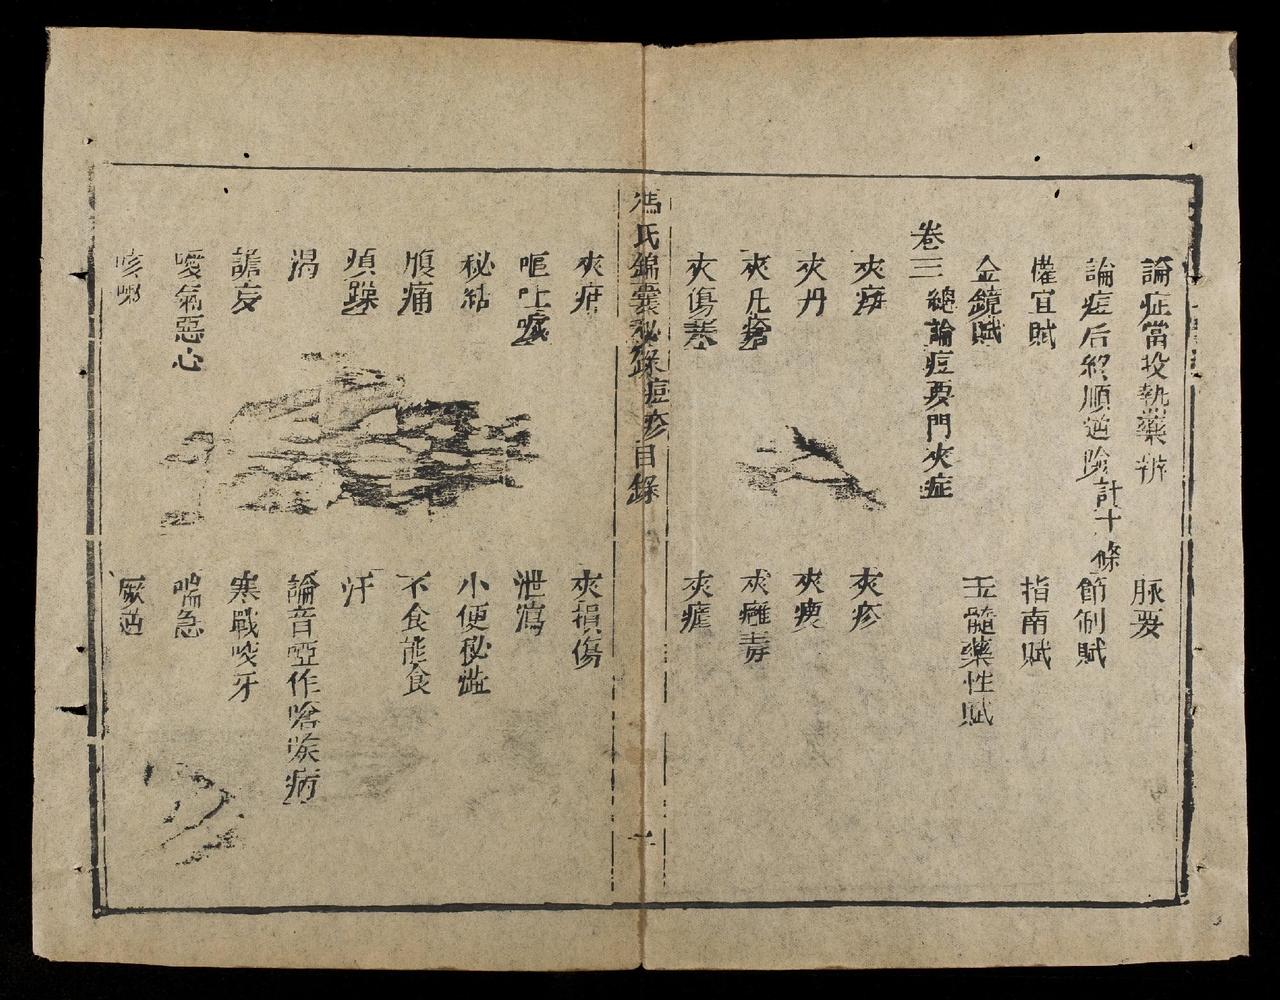 論症當投熱藥辨
脉要
論痘后終順逆險計十條
節制賦
權宜賦
指南賦
金鏡賦
玉髓藥性賦
卷三
總論痘要門夾症
夾疹
夾丹
夾
夾
夾癰毒
夾傷寒
夾瘧
馮氏錦囊秘錄痘疹目錄
一
夾疳
夾損傷
嘔吐
泄瀉
秘結
小便秘澁
腹痛
不食能食
煩躁
汗
渴
論音啞作嗆
譫妄
寒戰咬牙
噯氣惡心
喘急
咳嗽
厥逆